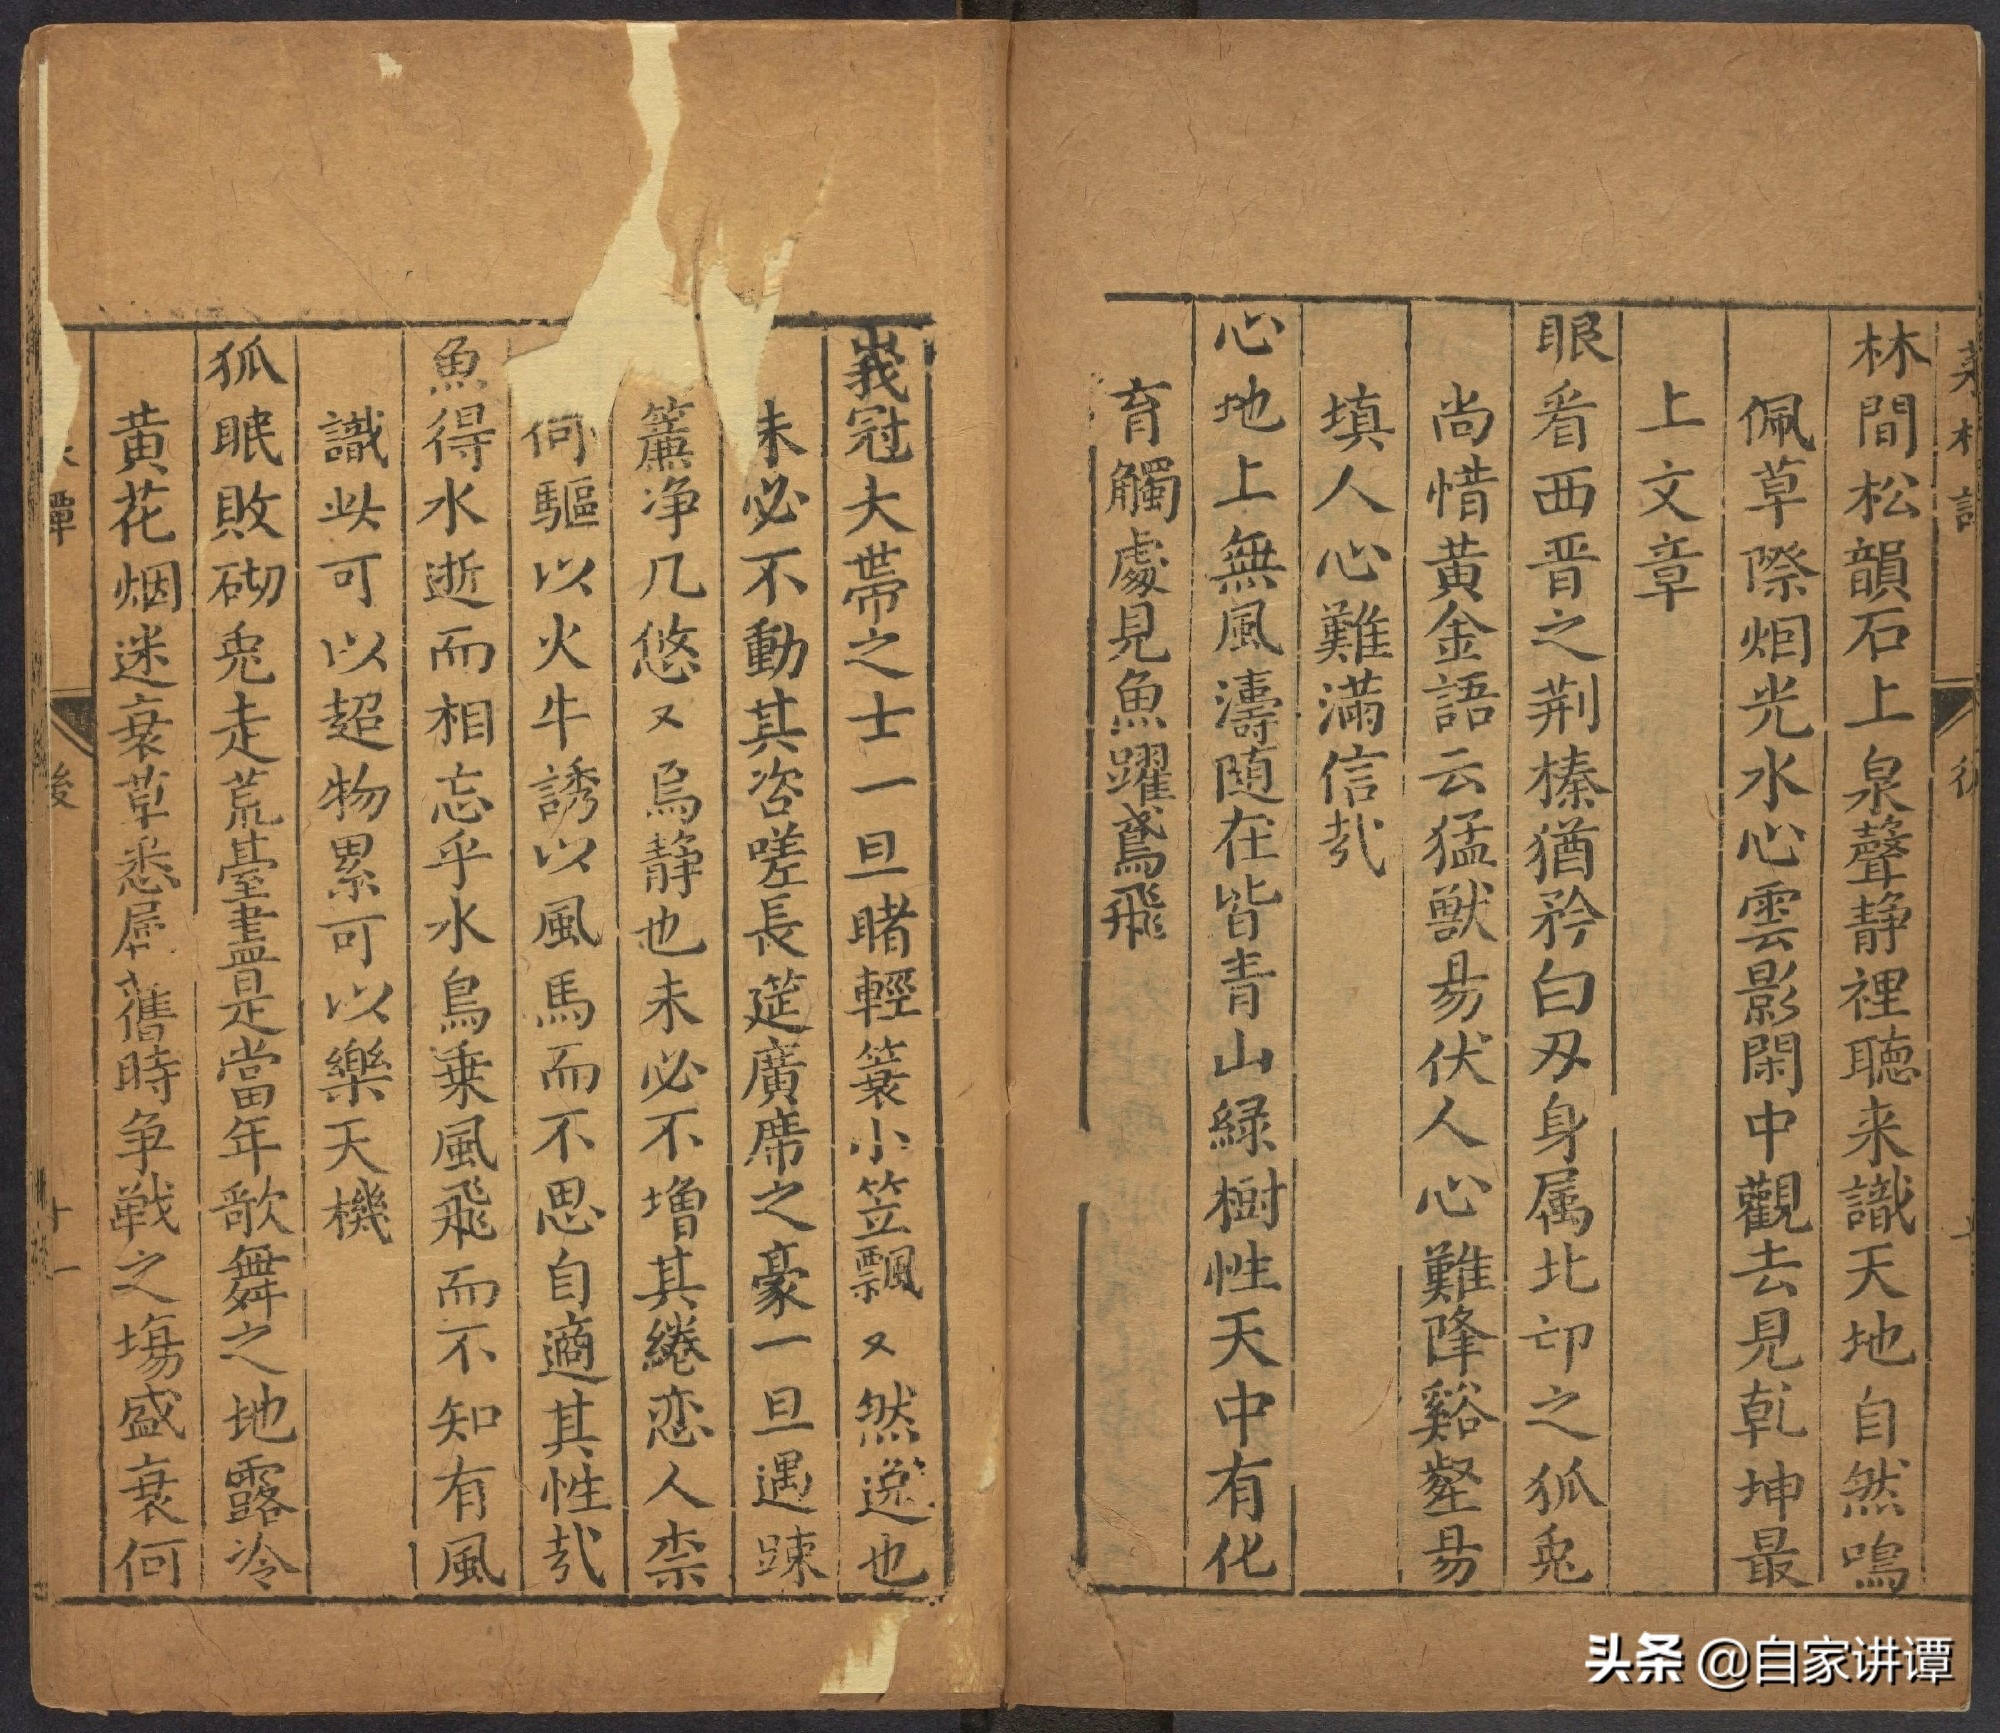 林間松韻石上泉聲静裡聴来識天地自然鳴
佩草際烟光水心雲影閑中觀去見乾坤最
上文章
眼看西晋之荆榛猶矜白刃身属北邙之狐兎
尚惜黄金語云猛獸昜伏人心難降谿壑昜
填人心難滿信㢤
心地上無風濤随在皆青山緑樹性天中有化
育觸處見魚躍鳶飛
峩冠大帶之士一旦睹輕簑小笠飄又然逸也
未必不動其咨嗟長筵廣席之豪一旦遇踈
簾净几悠又焉静也未必不增其綣恋人柰
何驅以火牛誘以風馬而不思自適其性㢤
魚得水逝而相忘乎水鳥乗風飛而不知有風
識此可以超物累可以樂天機
狐眠敗砌兎走荒臺盡是當年歌舞之地露冷
黄花烟迷衰草悉屬舊時争戦之塲盛衰何
譚
後
十一
头条 @自家讲谭